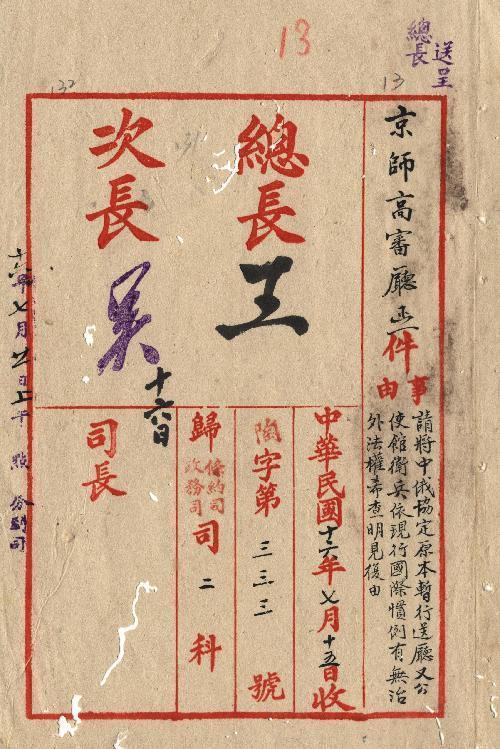 送呈
總長
13
13
132
131
京師高審廳函一件
事由
請將中俄協定原本暫行送廳又公
使館衛兵依現行國際慣例有無治
外法權希查明見復由
總長 王
次長 吳
十六日
中華民國十六年七月十五日收
字第三三三號
歸 條約司 政務司 司二科
司長